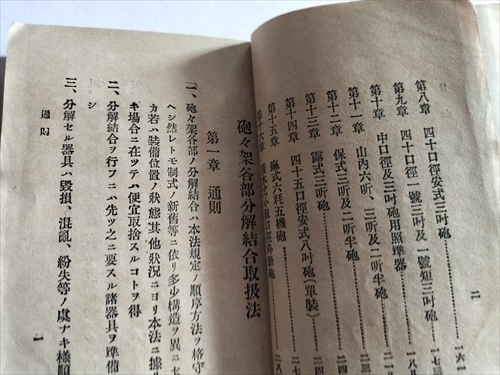 第八章 四十口徑安式三吋砲
第九章 四十口徑一號三吋及一號短三吋砲
第十章 中口徑及三吋砲用照準器
第十一章 山內六听、三听及二听半砲
第十二章 保式三听及二听半砲
第十三章 露式三听砲
第十四章 四十五口徑安式八吋砲(單裝)
第十五章 麻式六粍五機砲
二
砲々架各部分解結合取扱法
第一章 通則
一、砲々架各部ノ分解結合ハ本法規定ノ順序方法ヲ格守
ヘシ然レトモ制式ノ新舊等ニ依リ多少構造ヲ異ニ
カ若ハ裝備位置ノ狀態其他狀況ニヨリ本法ニ據
キ場合ニ在ツテハ便宜取捨スルコトヲ得
二、分解結合ヲ行フニハ先ツ之ニ要スル諸器具ヲ準備
シ
三、分解セル器具ハ毀損、混亂、紛失等ノ處ナキ樣
通則
一